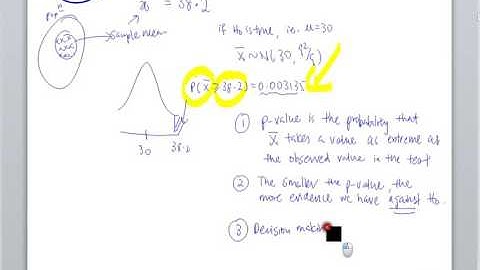 x̄ = 38.2
Popⁿ
sample mean
if H₀ is true, i.e. μ=30
X̄ ~ N(30, 9²/5)
P(X̄ ≥ 38.2) = 0.003135
30 38.2
① p-value is the probability that
X̄ takes a value as extreme as
the observed value in the test
② The smaller the p-value, the
more evidence we have against H₀.
③ Decision makin